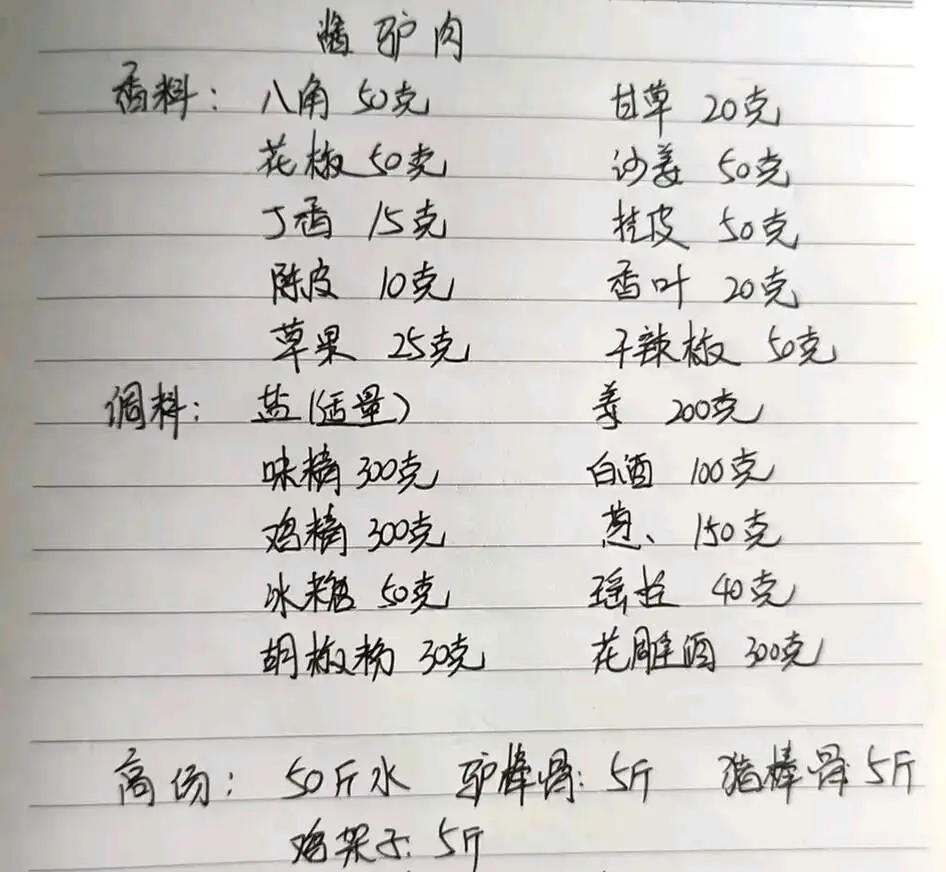 酱驴肉
香料: 八角 50克 甘草 20克
花椒 50克 沙姜 50克
丁香 15克 桂皮 50克
陈皮 10克 香叶 20克
草果 25克 干辣椒 50克
调料: 盐(适量) 姜 200克
味精 300克 白酒 100克
鸡精 300克 葱、150克
冰糖 50克 瑶柱 40克
胡椒粉 30克 花雕酒 300克
高汤: 50斤水 驴棒骨: 5斤 猪棒骨: 5斤
鸡架子: 5斤